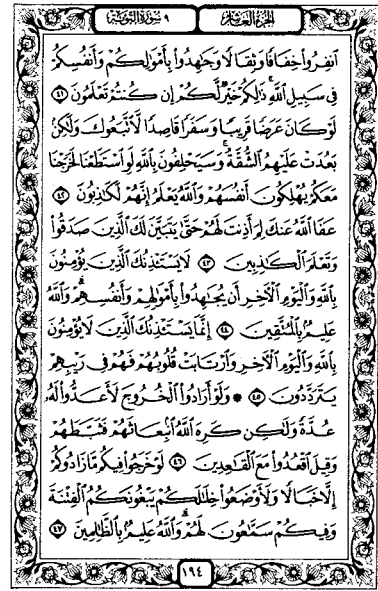 الجزء العاشر
٩ سورة التوبة
ٱنفِرُوا۟ خِفَافًا وَثِقَالًا وَجَٰهِدُوا۟ بِأَمْوَٰلِكُمْ وَأَنفُسِكُمْ
فِى سَبِيلِ ٱللَّهِ ذَٰلِكُمْ خَيْرٌ لَّكُمْ إِن كُنتُمْ تَعْلَمُونَ ٤١
لَوْ كَانَ عَرَضًا قَرِيبًا وَسَفَرًا قَاصِدًا لَّٱتَّبَعُوكَ وَلَٰكِنۢ
بَعُدَتْ عَلَيْهِمُ ٱلشُّقَّةُ وَسَيَحْلِفُونَ بِٱللَّهِ لَوِ ٱسْتَطَعْنَا لَخَرَجْنَا
مَعَكُمْ يُهْلِكُونَ أَنفُسَهُمْ وَٱللَّهُ يَعْلَمُ إِنَّهُمْ لَكَٰذِبُونَ ٤٢
عَفَا ٱللَّهُ عَنكَ لِمَ أَذِنتَ لَهُمْ حَتَّىٰ يَتَبَيَّنَ لَكَ ٱلَّذِينَ صَدَقُوا۟
وَتَعْلَمَ ٱلْكَٰذِبِينَ ٤٣ لَا يَسْتَـْٔذِنُكَ ٱلَّذِينَ يُؤْمِنُونَ
بِٱللَّهِ وَٱلْيَوْمِ ٱلْءَاخِرِ أَن يُجَٰهِدُوا۟ بِأَمْوَٰلِهِمْ وَأَنفُسِهِمْ وَٱللَّهُ
عَلِيمٌۢ بِٱلْمُتَّقِينَ ٤٤ إِنَّمَا يَسْتَـْٔذِنُكَ ٱلَّذِينَ لَا يُؤْمِنُونَ
بِٱللَّهِ وَٱلْيَوْمِ ٱلْءَاخِرِ وَٱرْتَابَتْ قُلُوبُهُمْ فَهُمْ فِى رَيْبِهِمْ
يَتَرَدَّدُونَ ٤٥ ۞ وَلَوْ أَرَادُوا۟ ٱلْخُرُوجَ لَأَعَدُّوا۟ لَهُۥ
عُدَّةً وَلَٰكِن كَرِهَ ٱللَّهُ ٱنۢبِعَاثَهُمْ فَثَبَّطَهُمْ
وَقِيلَ ٱقْعُدُوا۟ مَعَ ٱلْقَٰعِدِينَ ٤٦ لَوْ خَرَجُوا۟ فِيكُم مَّا زَادُوكُمْ
إِلَّا خَبَالًا وَلَأَوْضَعُوا۟ خِلَٰلَكُمْ يَبْغُونَكُمُ ٱلْفِتْنَةَ
وَفِيكُمْ سَمَّٰعُونَ لَهُمْ وَٱللَّهُ عَلِيمٌۢ بِٱلظَّٰلِمِينَ ٤٧
١٩٤